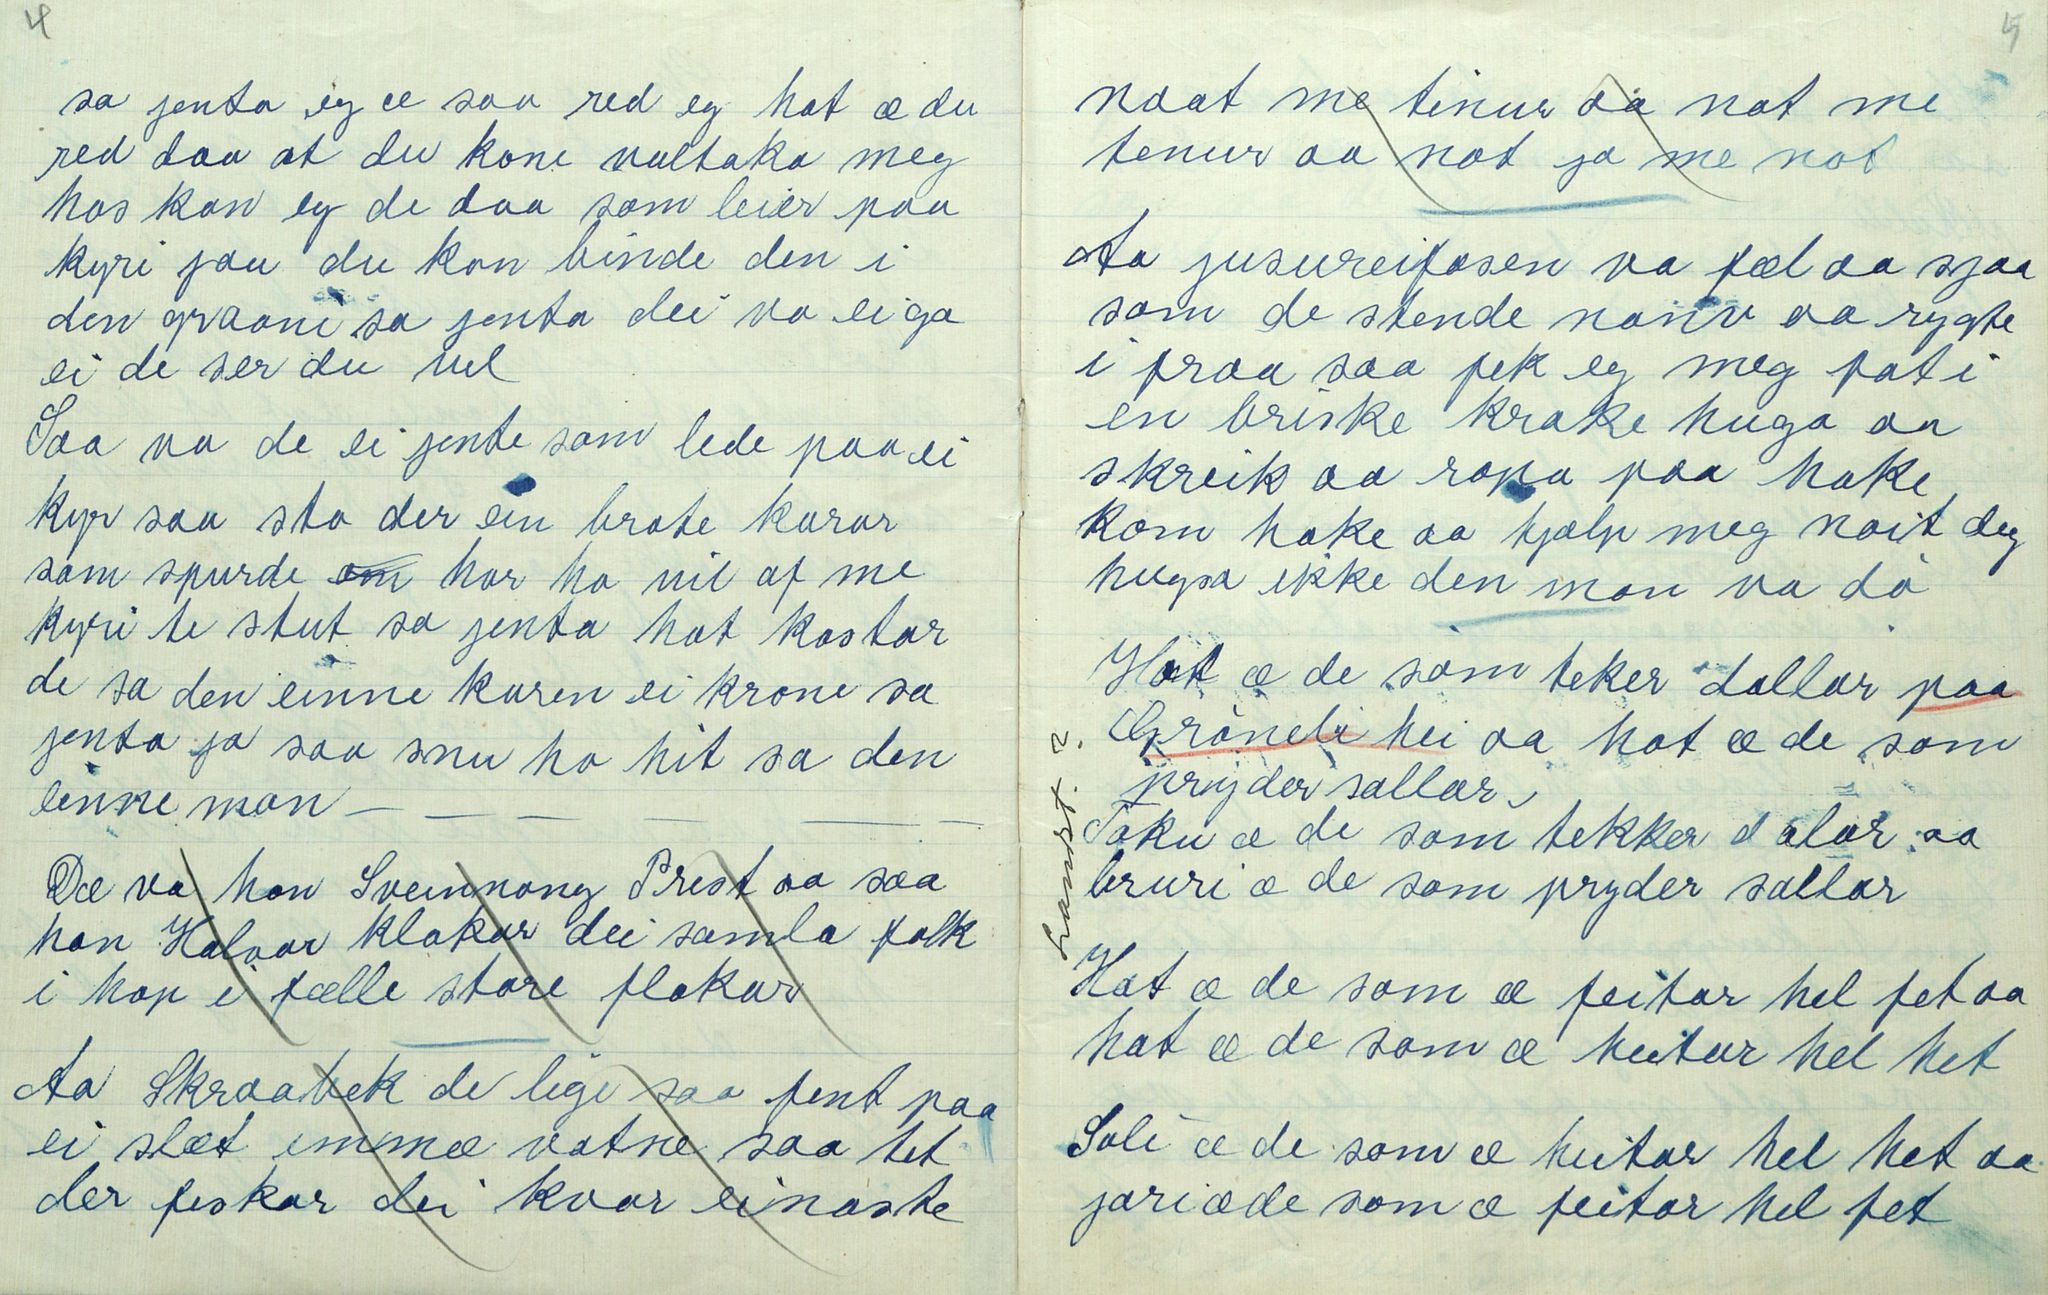 4
sa jenta eg æ saa red eg hat æ du
red daa at du kone valtaka meg
hos kan eg de daa som leier paa
kyri jau du kan binde den i
den graane sa jenta dei va eiga
ei de ser du vel
Saa va de ei jente som lede paa ei
kyr saa sto der ein brate karar
som spurde om hor ho vil af me
kyri te stut sa jenta hat kostar
de sa den einne karen ei krone sa
jenta ja saa snu ho hit sa den
einne man — — — — — —
Dæ va han Sveinnong Prest aa saa
han Halvor klakar dei samla folk
i hop i fælle store flakar
Aa Skraabek de lige saa fent paa
ei slæt emmæ vatne saa tet
der feskar dei kvar einaste
5
naat me tinur aa nat me
tenur aa nat ja me nat
Aa jusureifosen va fæl aa sjaa
som de stende nanv aa rygte
i fraa saa fek eg meg fat i
en briske krake huga aa
skreik aa ropa paa hake
kom hake aa hjælp meg noit deg
hugsa ikke den man va dò
Hat æ de som teker dallar paa
Gròneli hei aa hat æ de som
pryder sallar
Toku æ de som tekker dalar aa
bruri æ de som pryder sallar
Hat æ de som æ feitar hel fet aa
hat æ de som æ heitar hel het
Soli æ de som æ heitar hel het aa
jori æ de som æ feitar hel fet